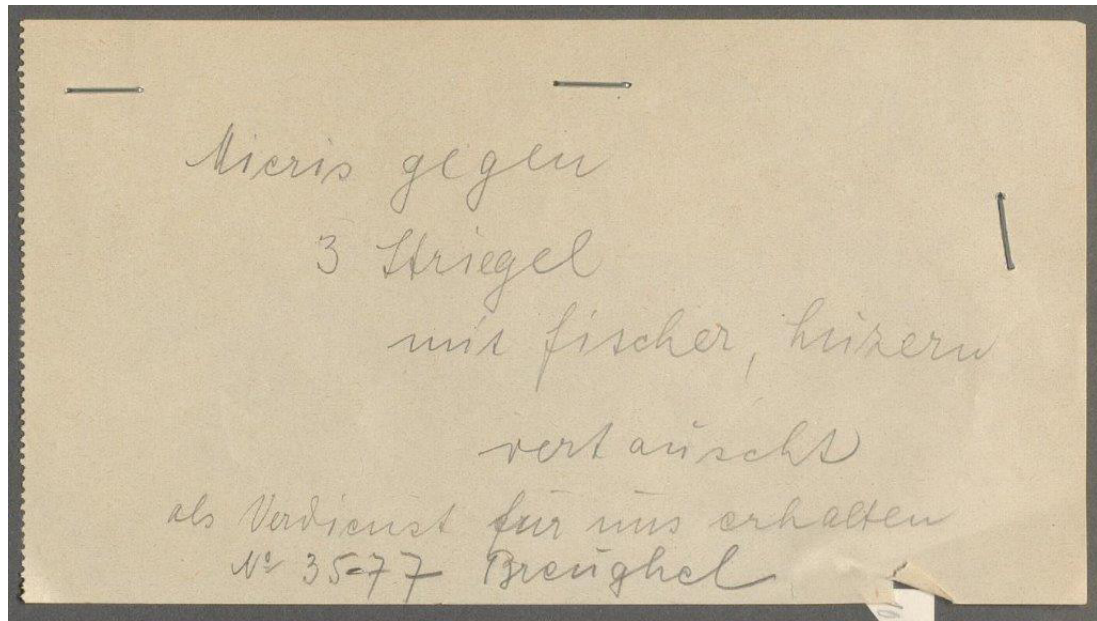 Mieris gegen
3 Striegel
mit Fischer, Luzern
vertauscht
als Verdienst für uns erhalten
Nº 3577 Breughel